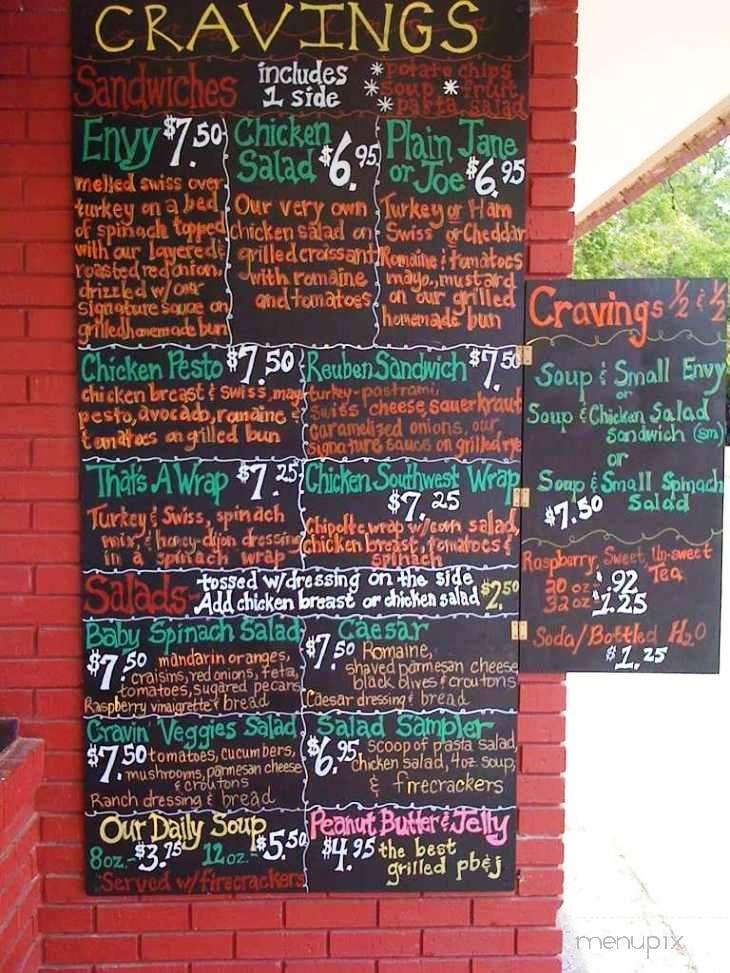 CRAVINGS
Sandwiches
includes
1 side
* potato chips
* soup * fruit
* pasta salad
Envy $7.50
melted swiss over
turkey on a bed
of spinach topped
with our layered &
roasted red onion,
drizzled w/our
signature sauce on
grilled homemade bun
Chicken
Salad $6.95
Our very own
chicken salad on
grilled croissant
with romaine
and tomatoes
Plain Jane
or Joe $6.95
Turkey or Ham
Swiss or Cheddar
Romaine & tomatoes
mayo, mustard
on our grilled
homemade bun
Chicken Pesto $7.50
chicken breast & swiss, mayo
pesto, avocado, romaine &
tomatoes on grilled bun
Reuben Sandwich $7.50
turkey-pastrami,
swiss cheese, sauerkraut
caramelized onions, our
signature sauce on grilled rye
That's A Wrap $7.25
Turkey & Swiss, spinach
mix, & honey-dijon dressing
in a spinach wrap
Chicken Southwest Wrap
$7.25
Chipolte wrap w/corn salad,
chicken breast, tomatoes &
spinach
Salads-
tossed w/dressing on the side
Add chicken breast or chicken salad $2.50
Baby Spinach Salad
$7.50 mandarin oranges,
craisins, red onions, feta,
tomatoes, sugared pecans
Raspberry vinaigrette & bread
Caesar
$7.50 Romaine,
shaved parmesan cheese
black olives & croutons
Caesar dressing & bread
Cravin' Veggies Salad
$7.50 tomatoes, cucumbers,
mushrooms, parmesan cheese
& croutons
Ranch dressing & bread
Salad Sampler
$6.95 scoop of pasta salad,
chicken salad, 4oz soup,
& firecrackers
Our Daily Soup
8oz.-$3.75 12oz.-$5.50
Served w/firecrackers
Peanut Butter & Jelly
$4.95 the best
grilled pb&j
Cravings ½ & ½
Soup & Small Envy
or
Soup & Chicken Salad
Sandwich (sm)
or
Soup & Small Spinach
Salad
$7.50
Raspberry, Sweet, Un-sweet
Tea
20 oz $.92
32 oz $1.25
Soda/Bottled H2O
$1.25
menupix